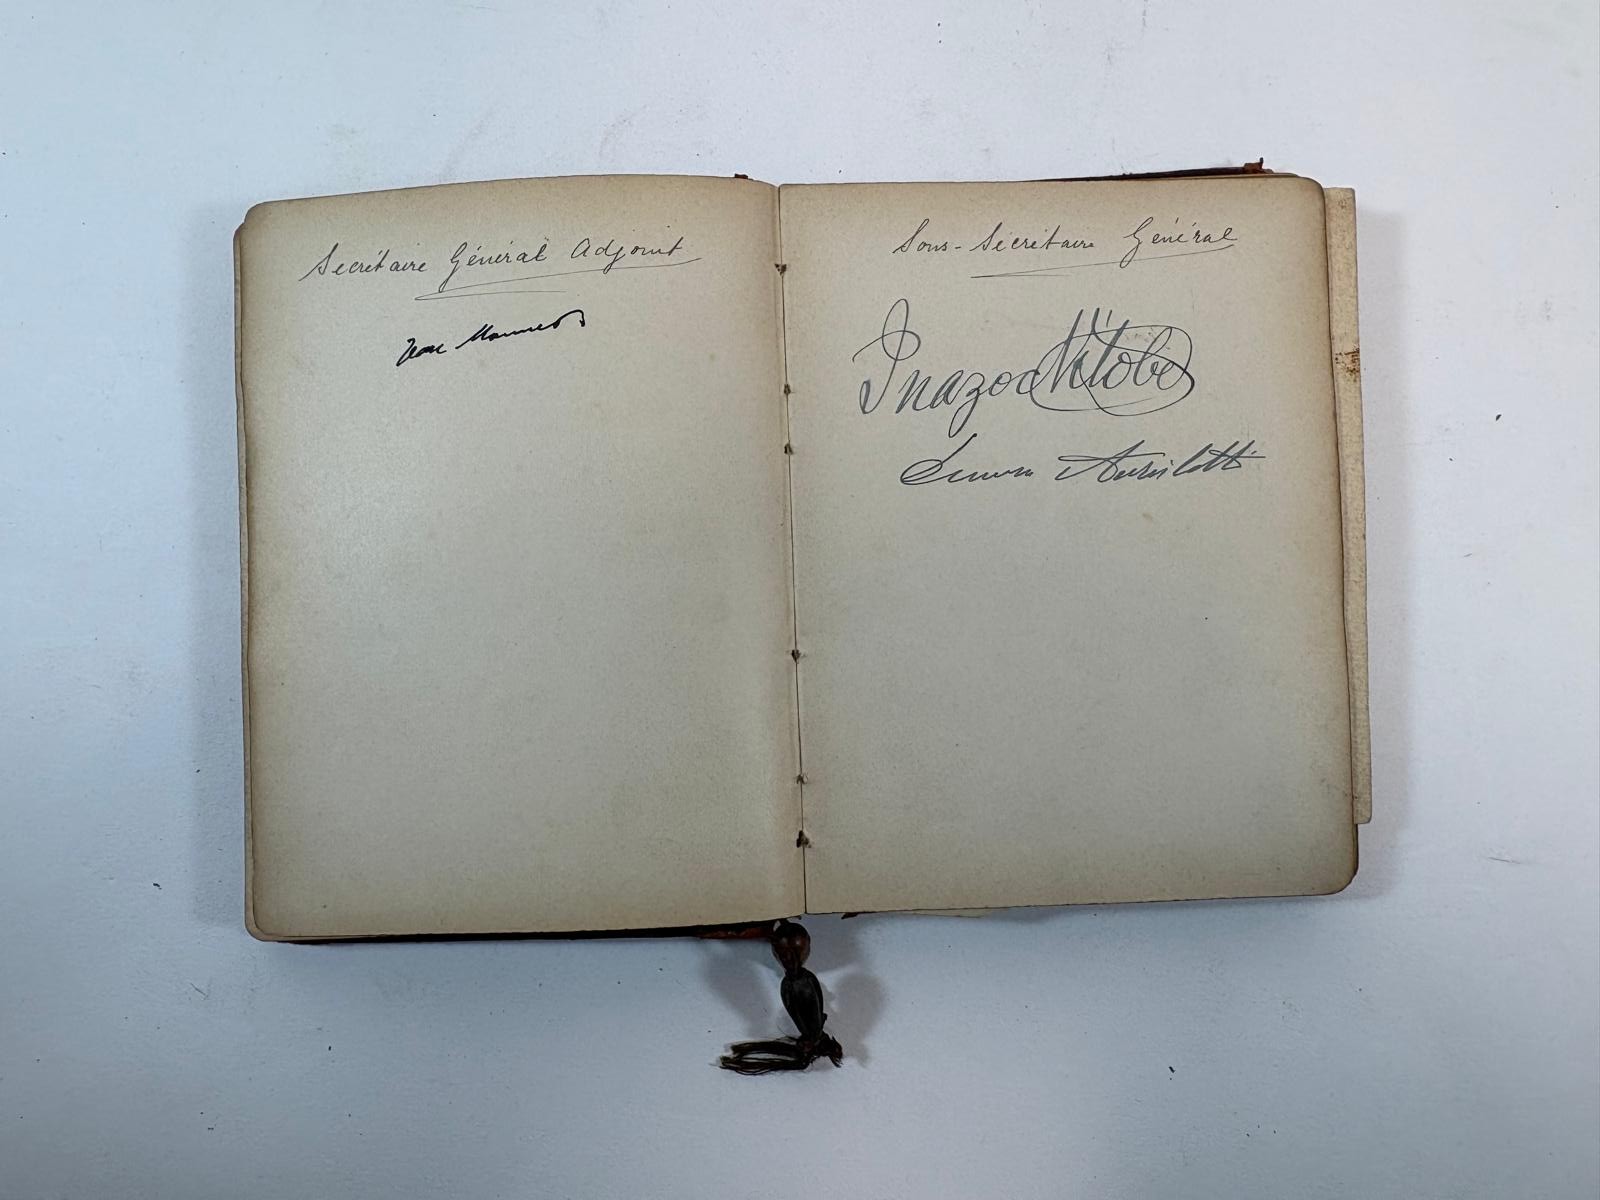 Secrétaire Général Adjoint
Jean Monnet
Sous-Secrétaire Général
Inazo Nitobe
Dionisio Anzilotti